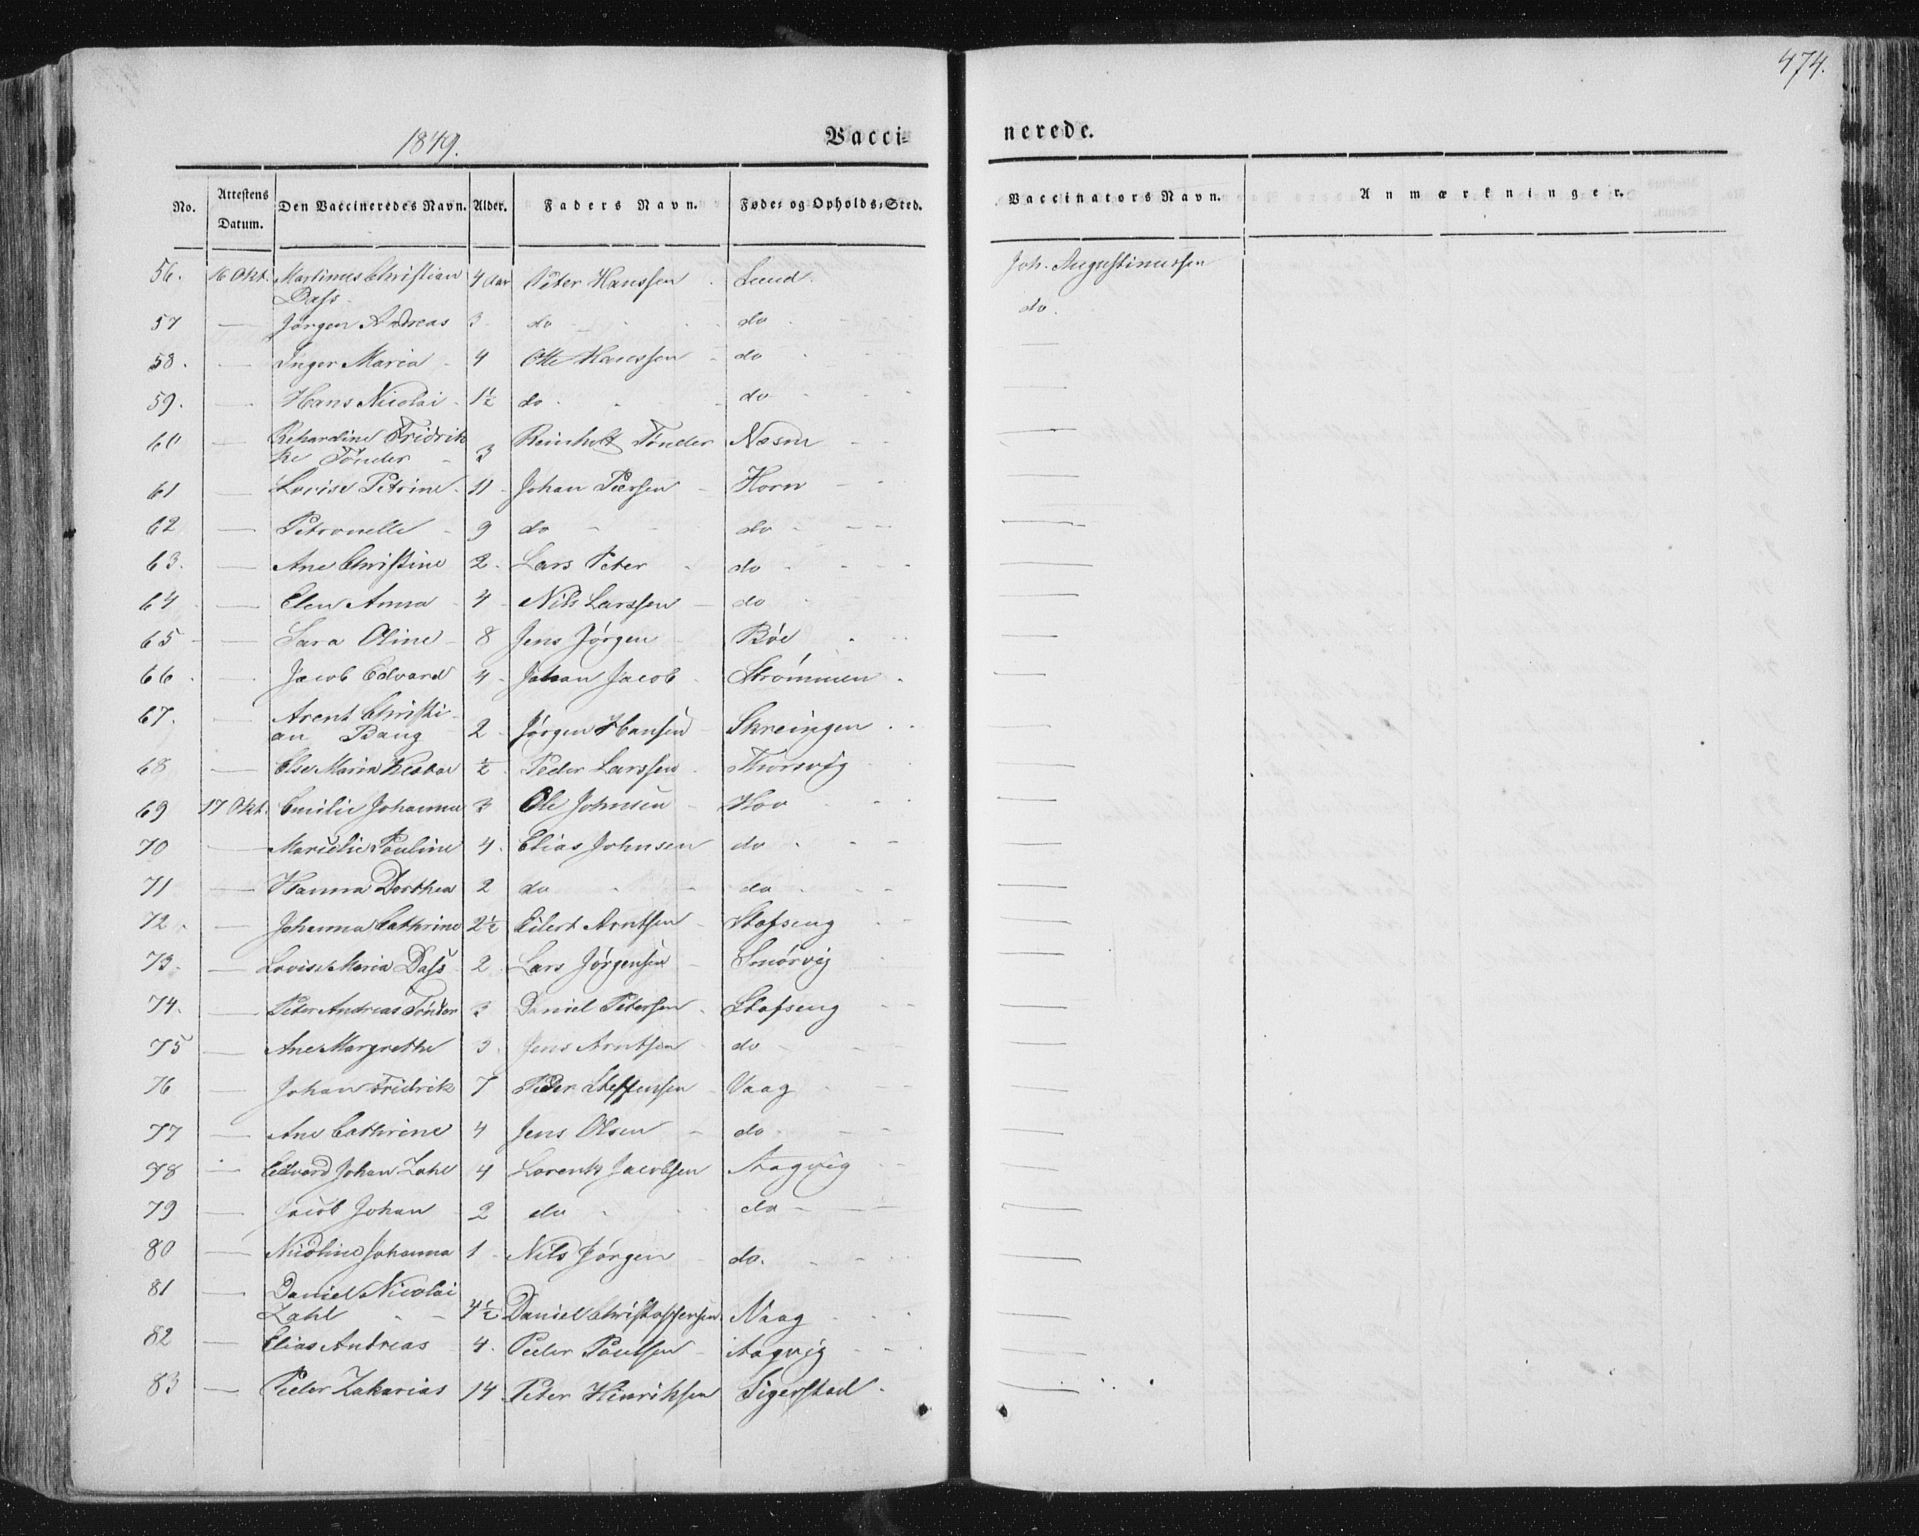 474.
1849.
Vacci-
nerede.
No. Attestens Datum. Den Vaccineredes Navn. Alder. Faders Navn. Føde- og Opholds-Sted. Vaccinators Navn. Anmærkninger.
56. 16 Okt. Martinus Christian 4 Aar Peter Hanssen Lund. Joh. Augustinussen
Dass
57 — Jørgen Andreas 3 do do do.
58. — Inger Maria 4 Ole Hanssen do —
59. — Hans Nicolai 1½ do do —
60 — Fridrik- Reinholt Tønder Næsna —
ke Tønder 3
61 — Lovise Petrine 11 Johan Peersen Horn —
62 — Petronelle 9 do do —
63. — Ane Christine 2 Lars Peter do —
64 — Elen Anna 4 Nils Larssen do —
65 — Sara Oline 8 Jens Jørgen Bøe —
66 Jacob Edvard 4 Johan Jacob Strømmen —
67. — Arent Christi-
an Bang 2 Jørgen Hansen Skreingen —
68 — Else Maria ½ Peder Larssen Thorsvig —
69 17 Okt. Emilie Johanna 3 Ole Johnsen Hov —
70 — Marielie Pauline 4 Elias Johnsen do —
71 — Hanna Dorthea 2 do do —
72. — Johanna Cathrine 2½ Eilert Arntsen Stafseng —
73. — Lovise Maria Dass 2 Lars Jørgensen Smørvig —
74. — Peter Andreas Tønder 3 Daniel Petersen Stafseng —
75 — Ane Margrethe 3 Jens Arntsen do —
76 — Johan Fridrik 7 Peder Steffensen Vaag —
77 — Ane Cathrine 4 Jens Olsen do —
78 — Edvard Johan Zahl 4 Lorentz Jacobsen Aagvig —
79 — Jacob Johan 2 do do —
80 — Nicoline Johanna 1 Nils Jørgen do. —
81 — Daniel Nicolai
Zahl 4½ Daniel Christoffersen Vaag —
82 — Elias Andreas 4 Peder Poulsen Aagvig —
83 — Peder Zakarias 14 Peter Hinriksen Sigerstad —